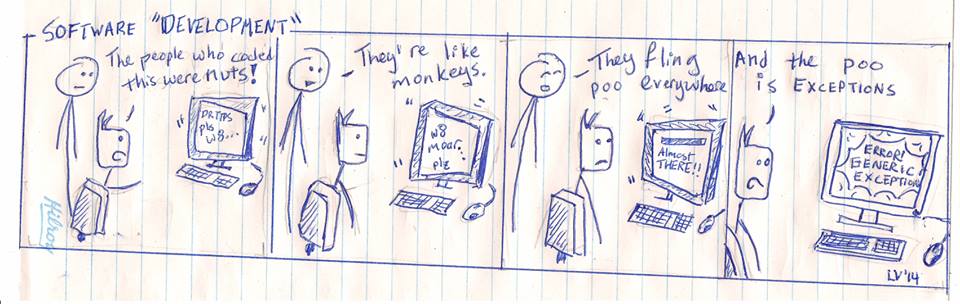 SOFTWARE "DEVELOPMENT"
The people who coded
this were nuts!
PRTIPS
pls
w8...
They're like
monkeys.
w8
moar..
plz
They fling
poo everywhere
Almost
THERE!!
And the poo
is EXCEPTIONS
ERROR!
GENERIC
EXCEPTION
Hilroy
LV'14